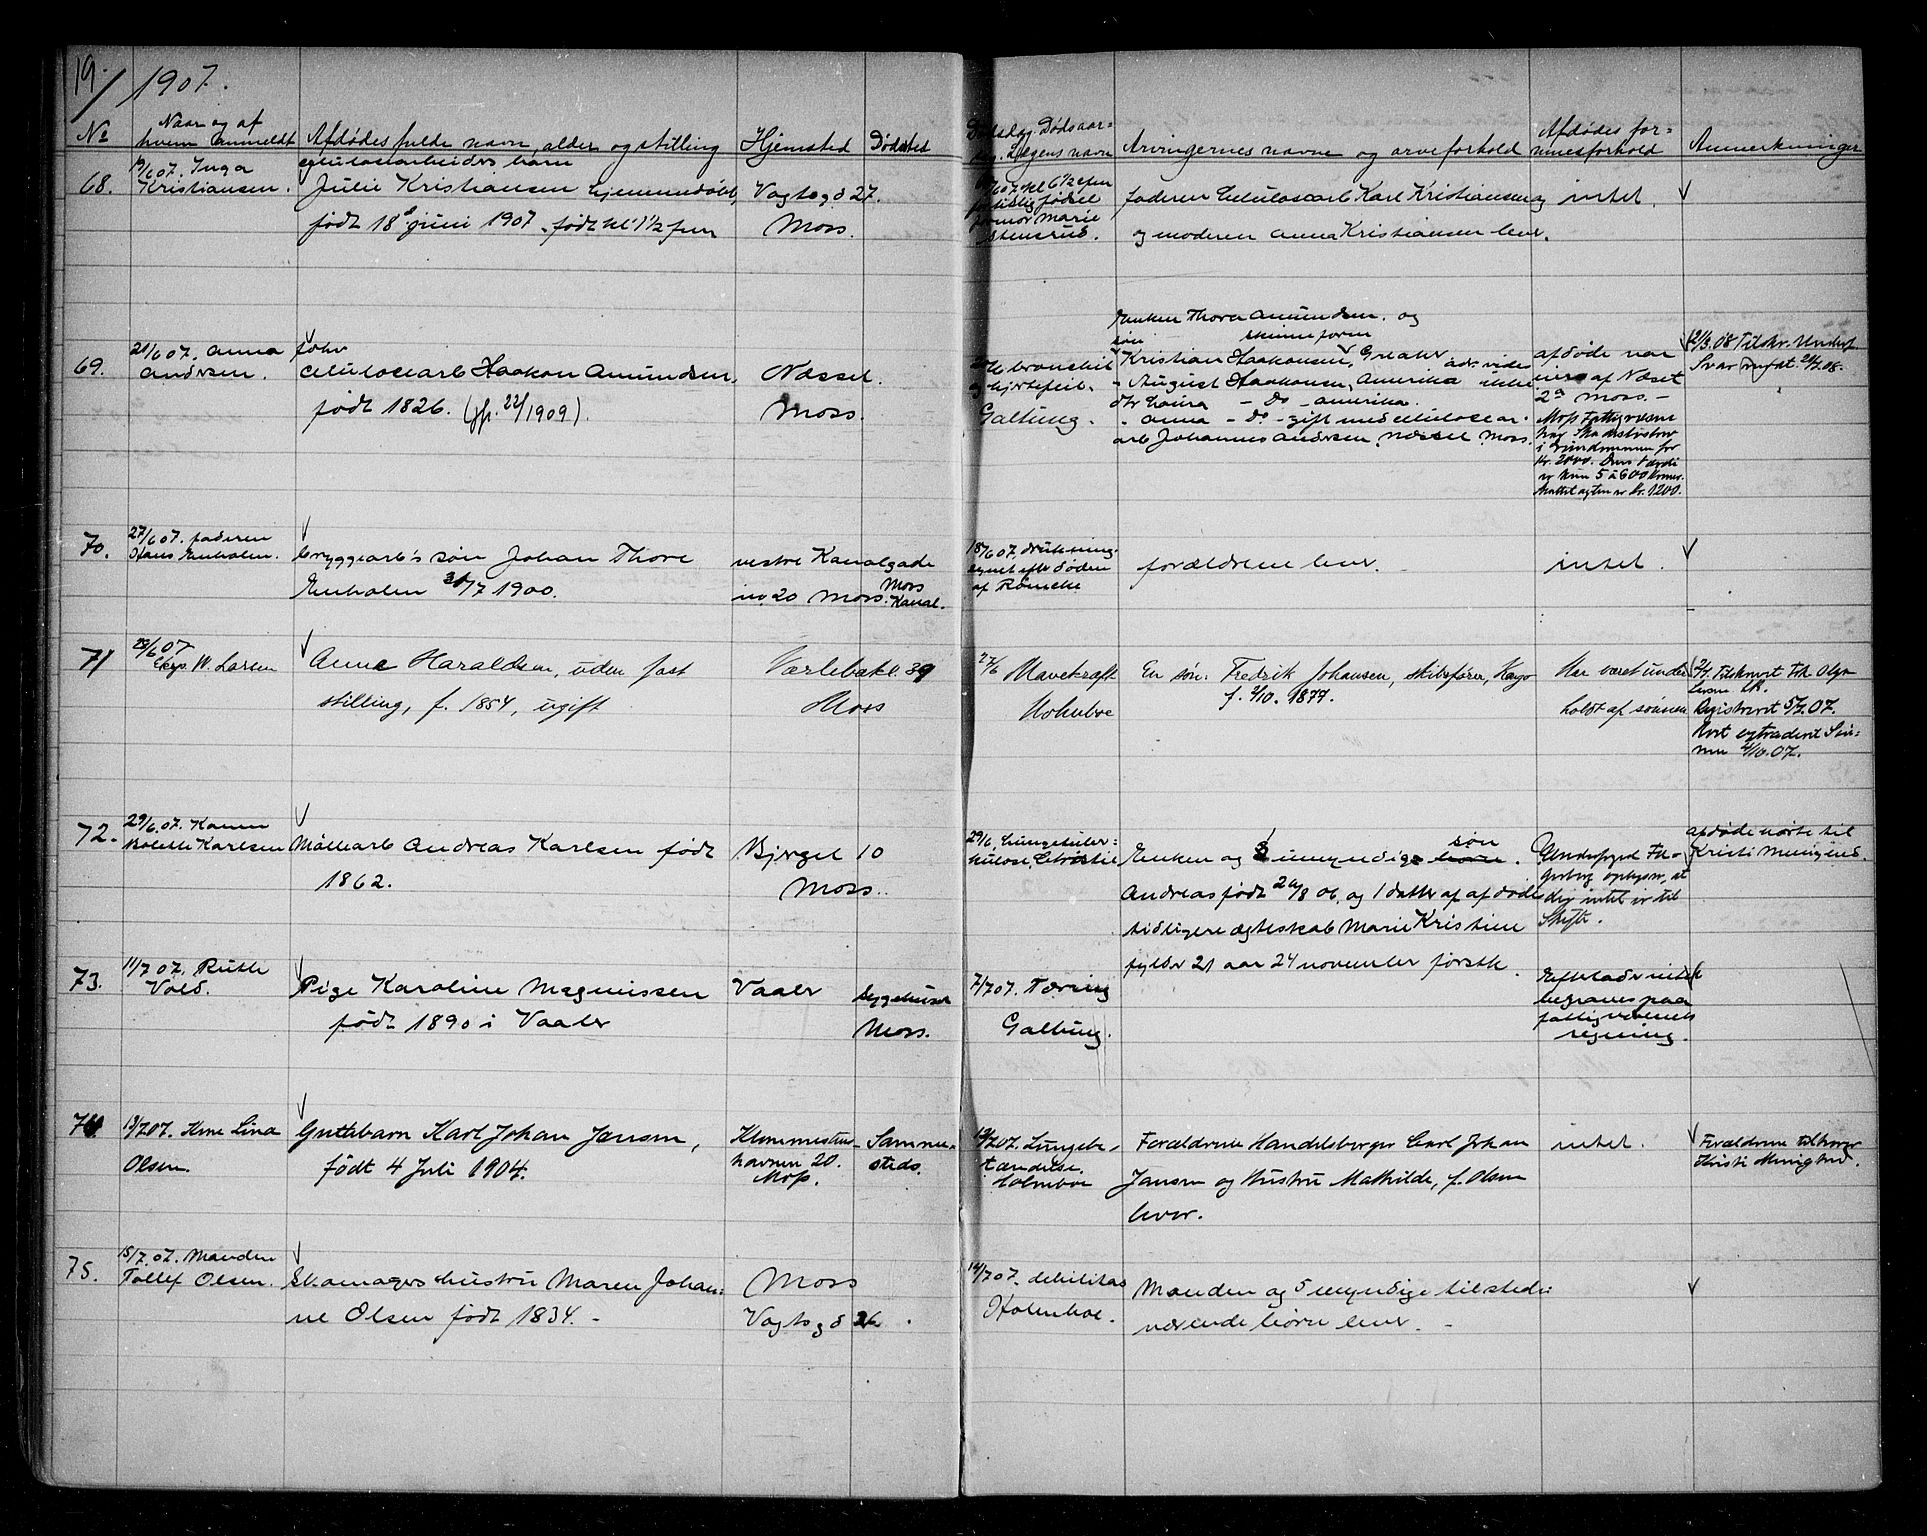 19.
1907.
No
Naar og af
hvem anmeldt
Afdødes fulde navn, alder og stilling
Hjemsted
Dødssted
Dødsdag. Dødsaar=
Lægens navn
Arvingernes navne og arveforhold
Afdødes for=
muesforhold
Anmerkninger
68.
19/6 07. Inga
Kristiansen.
celulosearbeiders barn
Julie Kristiansen hjemmedøbt,
født 18de juni 1907. født kl 1 1/2 fm
Vogtsgd 27.
Moss.
6 07. kl 6 1/2 efm
fødsel
Marie
Stensrud.
faderen Celulosearb Karl Kristiansen
og moderen Anna Kristiansen lever.
intet.
69.
21/6 07. Anna
Andersen.
fohv
celulosearb Haakon Amundsen,
født 1826. (jfr. 22/1909).
Næsset.
Moss.
bronchit
og hjertefeil.
Galtung.
Enken Thora Amundsen. og
søn
Kristian Haakonsen, Greaker
- August Haakonsen, Amerika
dtr Laura - Do - Amerika.
- Anna - Do - gift med celulosear.
arb Johannes Andersen Næsset Moss.
afdøde var
eier af Næset
2a Moss. -
Moss Fattigvæsen
har
i eiendommen for
Kr. 2000. Dens værdi
er kun 5 à 600 kroner.
er kr. 1200.
12/3.08 Tilskr.
Svar 21/2.08.
70.
27/6 07. faderen
Hans Enholm.
bryggearb's søn Johan Thore
Enholm 31/7 1900.
vestre Kanalgade
no. 20 Moss.
Moss
Kanal.
18/6 07. drukning.
synet efter døden
af Rømcke
forældrene lever. -
intet.
71
28/6 07
W. Larsen
Anne Haraldsen, uden fast
stilling, f. 1854, ugift
Værlebakk. 39
Moss
27/6 Mavekræft
Holmboe
En søn: Fredrik Johansen, skibsfører,
f. 1/10. 1877.
Har været under
holdt af sønnen
Registreret 5/7.07.
Bort extraderet Søn=
nen 4/10.07.
72.
29/6.07. Konen
Bolette Karlsen
Møllearb Andreas Karlsen født
1862.
Bjerget 10
Moss.
29/6. Lungetuber=
kulose.
Enken og umyndige søn
Andreas født 20/8 06. og 1 datter af afdøde
tidligere ægteskab Marie Kristine
fylder 21 aar 24 november førstk.
oplyser, at
intet er til
Skifte.
afdøde hørte til
Kristi Menighed.
73.
11/7 07. Ruth
Vold.
Pige Karoline Magnussen
født 1890 i Vaaler
Vaaler
Sygehuset
Moss.
7/7 07. Tæring
Galtung.
Efterlader intet
begraves paa
fattigvæsenets
regning.
74.
13/7 07. Kone Lina
Olsen.
Guttebarn Karl Johan Jansen,
født 4 Juli 1904.
havnen 20.
Moss.
Samme-
steds.
12/7 07. Lungebe-
tændelse.
Holmboe
Forældrene Handelsborger Carl Johan
Jansen og Hustru Mathilde, f. Olsen
lever.
intet.
Forældrene tilhører
Kristi Menighed.
75.
15/7.07. Manden
Tollef Olsen.
Skomagers hustru Maren Johan=
ne Olsen født 1834. -
Moss
Vogtsgd 26.
14/7 07. debilitas
Holmboe.
Manden og 5 myndige tilstede=
værende børn lever. -